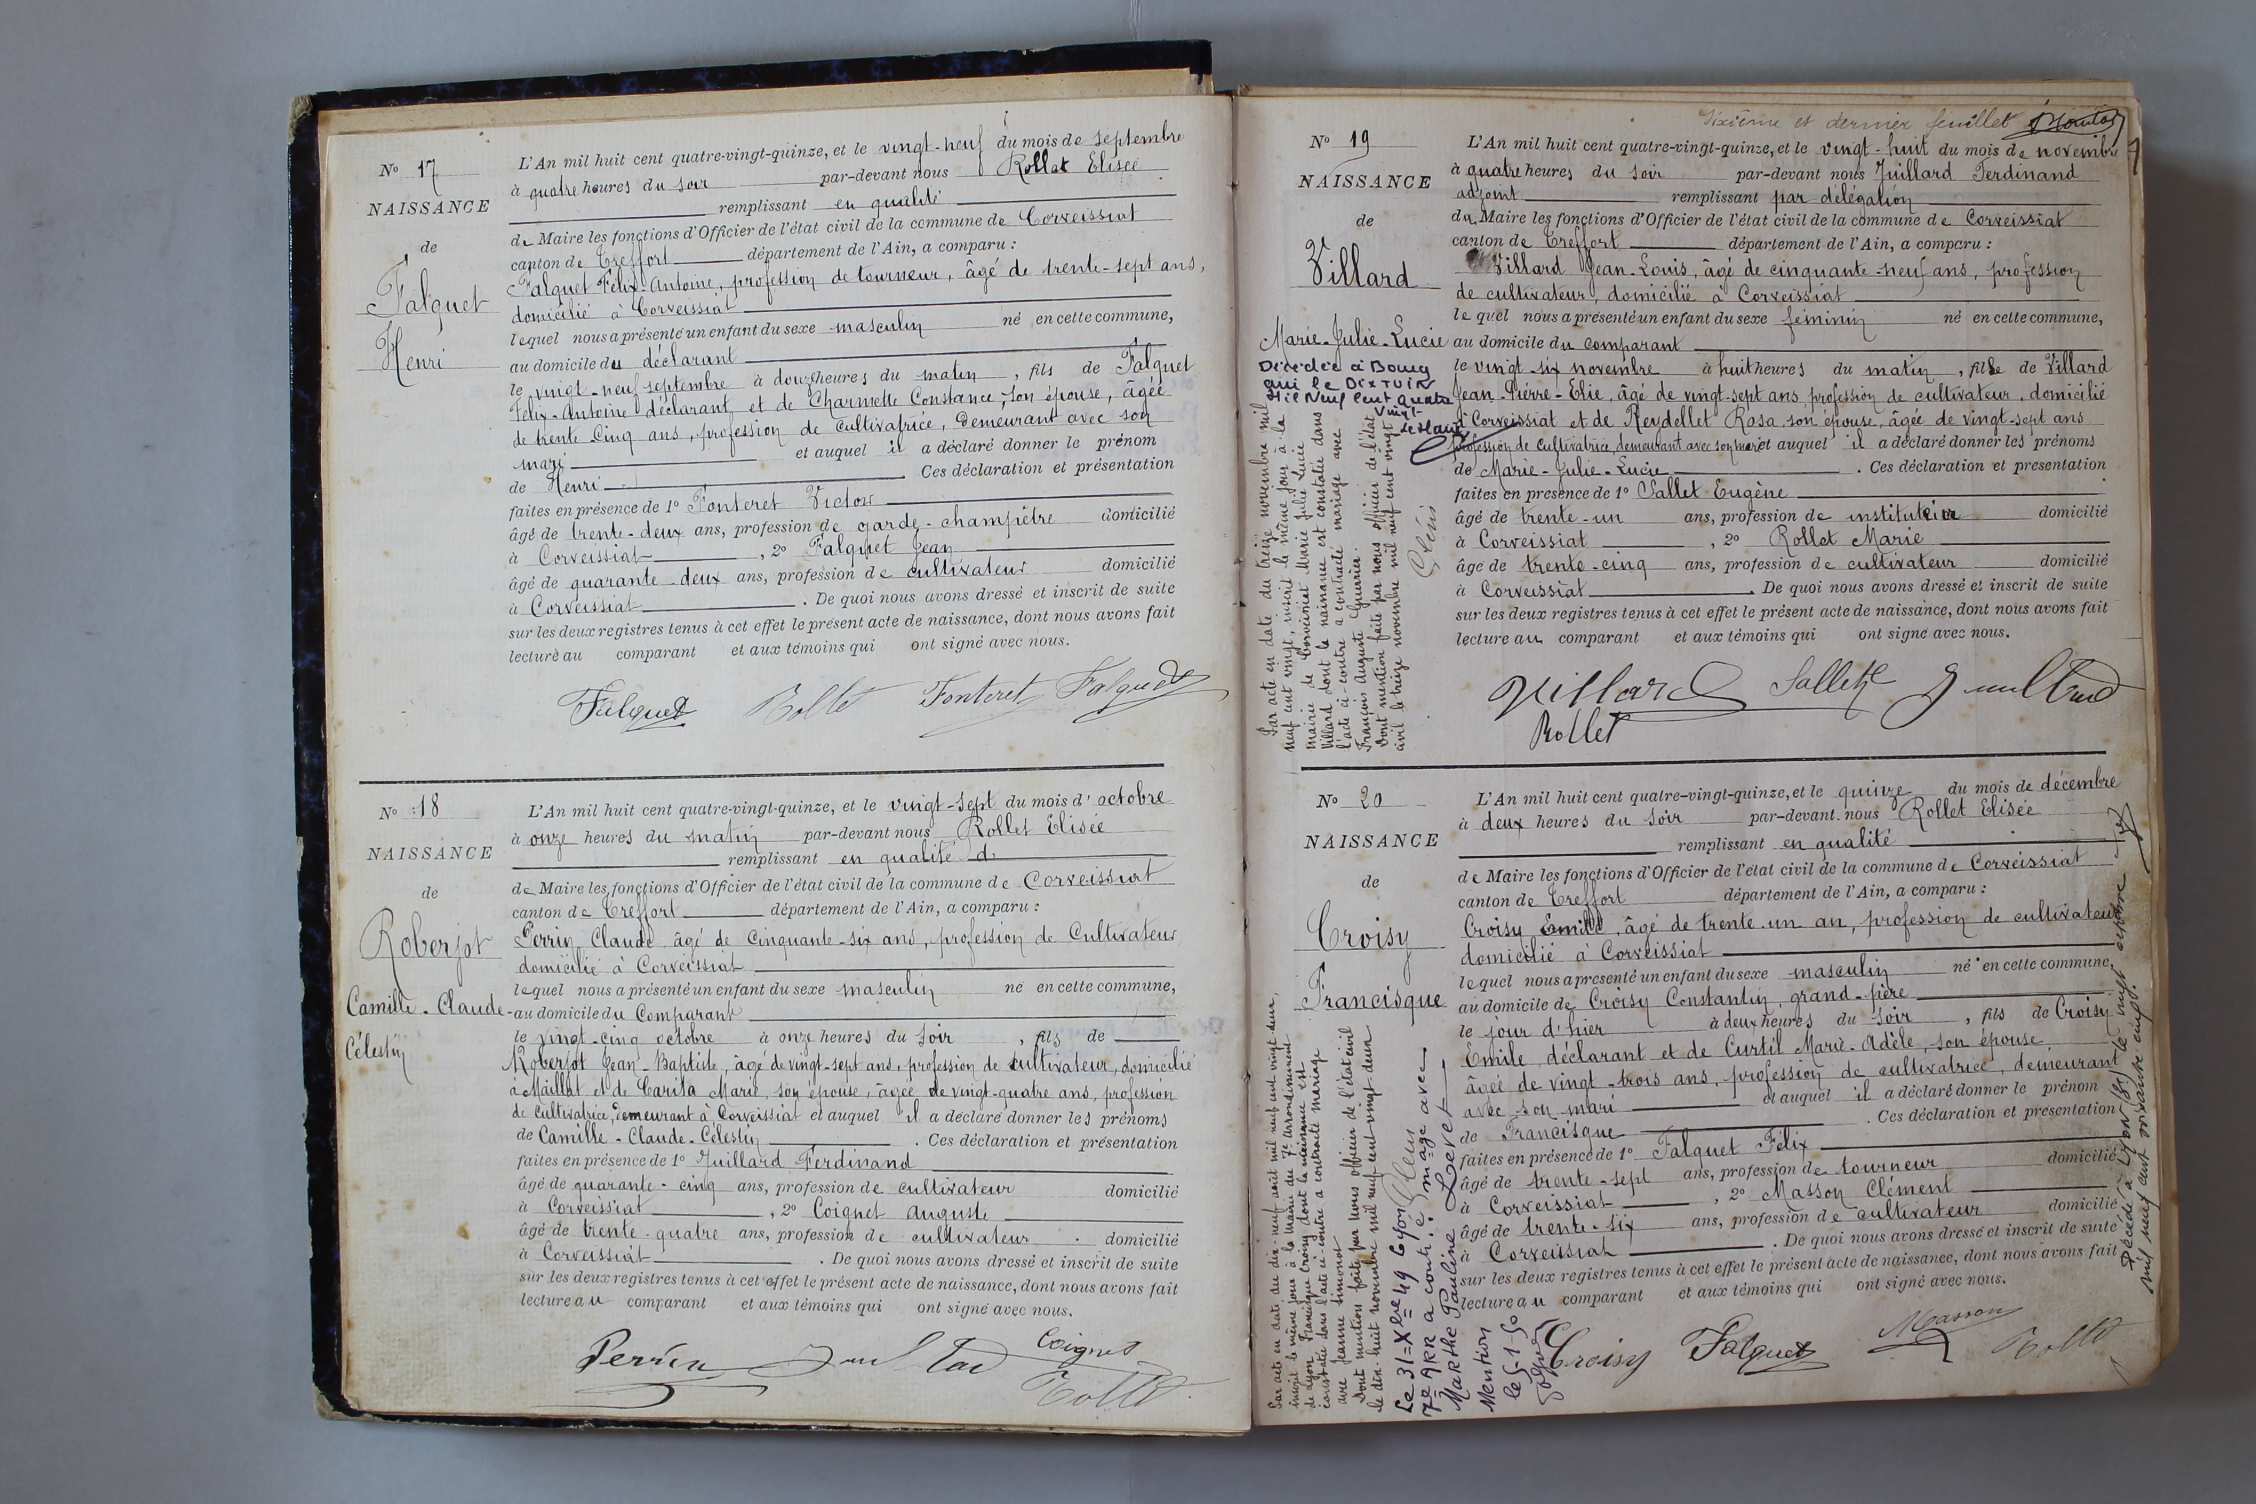 No 17
NAISSANCE
de
Falquet
Henri
L'An mil huit cent quatre-vingt-quinze, et le vingt-neuf du mois de septembre
à quatre heures du soir par-devant nous Rollet Elisée
remplissant en qualité
de Maire les fonctions d'Officier de l'état civil de la commune de Corveissiat
canton de Treffort département de l'Ain, a comparu :
Falquet Félix-Antoine, profession de tourneur, âgé de trente-sept ans,
domicilié à Corveissiat
lequel nous a présenté un enfant du sexe masculin né en cette commune,
au domicile du déclarant
le vingt-neuf septembre à douze heures du matin, fils de Falquet
Félix-Antoine déclarant et de Charmette Constance, son épouse, âgée
de trente cinq ans, profession de cultivatrice, demeurant avec son
mari et auquel il a déclaré donner le prénom
de Henri. Ces déclaration et présentation
faites en présence de 1º Fonteret Victor
âgé de trente-deux ans, profession de garde-champêtre domicilié
à Corveissiat, 2º Falquet Jean
âgé de quarante deux ans, profession de cultivateur domicilié
à Corveissiat. De quoi nous avons dressé et inscrit de suite
sur les deux registres tenus à cet effet le présent acte de naissance, dont nous avons fait
lecture au comparant et aux témoins qui ont signé avec nous.
Falquet Rollet Fonteret Falquet
No 18
NAISSANCE
de
Roberjot
Camille-Claude-
Célestin
L'An mil huit cent quatre-vingt-quinze, et le vingt-sept du mois d'octobre
à onze heures du matin par-devant nous Rollet Elisée
remplissant en qualité d
de Maire les fonctions d'Officier de l'état civil de la commune de Corveissiat
canton de Treffort département de l'Ain, a comparu :
Perrin Claude âgé de cinquante-six ans, profession de Cultivateur
domicilié à Corveissiat
lequel nous a présenté un enfant du sexe masculin né en cette commune,
au domicile du Comparant
le vingt-cinq octobre à onze heures du soir, fils de
Roberjot Jean-Baptiste, âgé de vingt-sept ans, profession de cultivateur, domicilié
à Maillat et de Carita Marie, son épouse, âgée de vingt-quatre ans, profession
de cultivatrice, demeurant à Corveissiat et auquel il a déclaré donner les prénoms
de Camille-Claude-Célestin. Ces déclaration et présentation
faites en présence de 1º Juillard Ferdinand
âgé de quarante-cinq ans, profession de cultivateur domicilié
à Corveissiat, 2º Coignet Auguste
âgé de trente-quatre ans, profession de cultivateur domicilié
à Corveissiat. De quoi nous avons dressé et inscrit de suite
sur les deux registres tenus à cet effet le présent acte de naissance, dont nous avons fait
lecture au comparant et aux témoins qui ont signé avec nous.
Perrin Coignet
Rollet
Sixième et dernier feuillet
No 19
NAISSANCE
de
Villard
Marie-Julie-Lucie
Décédée à Bourg
mil Neuf Cent quatre
vingt
L'An mil huit cent quatre-vingt-quinze, et le vingt-huit du mois de novembre
à quatre heures du soir par-devant nous Juillard Ferdinand
adjoint remplissant par délégation
du Maire les fonctions d'Officier de l'état civil de la commune de Corveissiat
canton de Treffort département de l'Ain, a comparu :
Villard Jean-Louis, âgé de cinquante-neuf ans, profession
de cultivateur, domicilié à Corveissiat
lequel nous a présenté un enfant du sexe féminin né en cette commune,
au domicile du comparant
le vingt-six novembre à huit heures du matin, fille de Villard
Jean-Pierre-Elie, âgé de vingt-sept ans, profession de cultivateur, domicilié
à Corveissiat et de Reydellet Rosa son épouse, âgée de vingt-sept ans
profession de cultivatrice, demeurant avec son mari et auquel il a déclaré donner les prénoms
de Marie-Julie-Lucie. Ces déclaration et présentation
faites en présence de 1º Sallet Eugène
âgé de trente-un ans, profession de instituteur domicilié
à Corveissiat, 2º Rollet Marie
âgé de trente-cinq ans, profession de cultivateur domicilié
à Corveissiat. De quoi nous avons dressé et inscrit de suite
sur les deux registres tenus à cet effet le présent acte de naissance, dont nous avons fait
lecture au comparant et aux témoins qui ont signé avec nous.
Par acte en date du treize novembre mil
neuf cent vingt, inscrit le même jour à la
mairie de Corveissiat Marie Julie Lucie
Villard dont la naissance est constatée dans
l'acte ci-contre a contracté mariage avec
François Auguste Guerrier.
Dont mention faite par nous officier de l'état
civil le treize novembre mil neuf cent vingt
Villard Sallet
Rollet
No 20
NAISSANCE
de
Croisy
Francisque
L'An mil huit cent quatre-vingt-quinze, et le quinze du mois de décembre
à deux heures du soir par-devant nous Rollet Elisée
remplissant en qualité
de Maire les fonctions d'Officier de l'état civil de la commune de Corveissiat
canton de Treffort département de l'Ain, a comparu :
Croisy Emile, âgé de trente-un an, profession de cultivateur
domicilié à Corveissiat
lequel nous a présenté un enfant du sexe masculin né en cette commune,
au domicile de Croisy Constantin, grand-père
le jour d'hier à deux heures du soir, fils de Croisy
Emile, déclarant et de Curtil Marie-Adèle, son épouse,
âgée de vingt-trois ans, profession de cultivatrice, demeurant
avec son mari et auquel il a déclaré donner le prénom
de Francisque. Ces déclaration et présentation
faites en présence de 1º Falquet Félix
âgé de trente-sept ans, profession de tourneur domicilié
à Corveissiat, 2º Masson Clément
âgé de trente-six ans, profession de cultivateur domicilié
à Corveissiat. De quoi nous avons dressé et inscrit de suite
sur les deux registres tenus à cet effet le présent acte de naissance, dont nous avons fait
lecture au comparant et aux témoins qui ont signé avec nous.
Par acte en date du dix-neuf août mil neuf cent vingt deux,
inscrit le même jour à la mairie du 7e arrondissement
de Lyon, Francisque Croisy dont la naissance est
constatée dans l'acte ci-contre a contracté mariage
avec Jeanne Simonet
Dont mention faite par nous officier de l'état civil
le dix-huit novembre mil neuf cent vingt-deux
Le 31=Xbre 49 Lyon
7e ARR a contr. é mage avec
Marthe Pauline Levet
Mention
le 5-1-50
Décédé à Lyon le vingt
mil neuf cent soixante cinq.
Croisy Falquet Masson Rollet